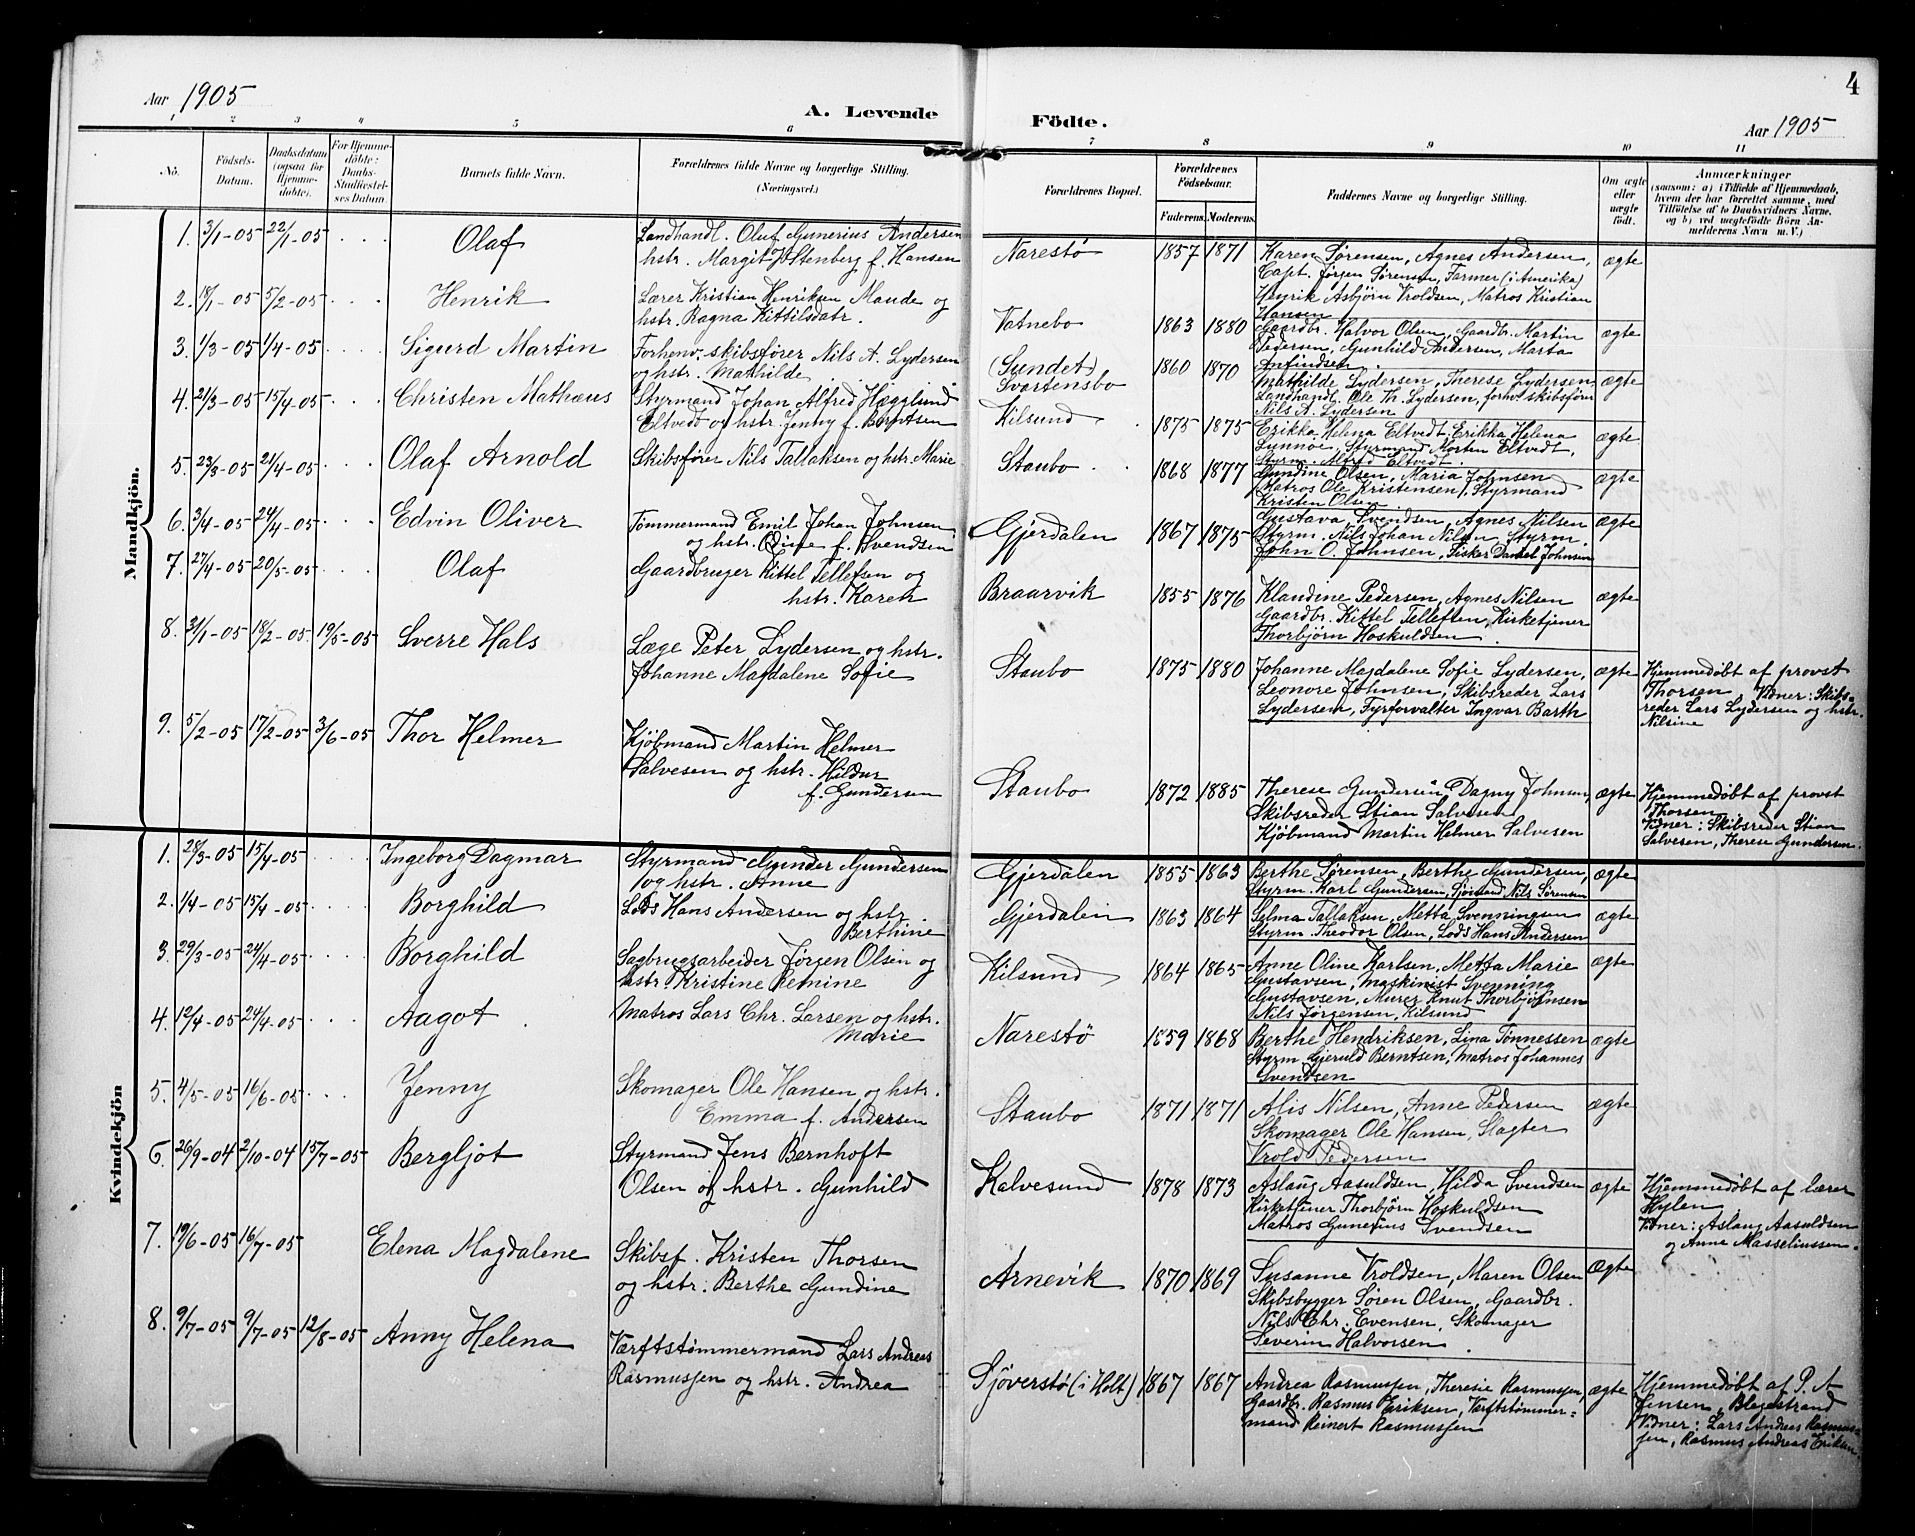 Aar 1905
A. Levende
1 2 3 4 5 6
No.
Födsels-
Datum.
Daabsdatum
(ogsaa for
Hjemme-
döbte).
For Hjemme-
döbte:
Daabs-
Stadfæstel-
ses Datum.
Barnets fulde Navn.
Forældrenes fulde Navne og borgerlige Stilling.
(Næringsvei.)
Mandkjön.
1. 3/1-05 22/1-05 Olaf
Landhandl. Oluf Gunerius Andersen
hstr. Margit Stenberg f. Hansen
2. 18/1-05 5/2-05 Henrik
Lærer Kristian Henriksen Maude og
hstr. Ragna Kittilsdatr.
3. 1/3-05 1/4-05 Sigurd Martin
Forhenv. skibsfører Nils A. Lydersen
og hstr. Mathilde
4. 21/3-05 15/4-05 Christen Mathæus
Styrmand Johan Alfred Hægglund
Eltvedt og hstr. Jenny f. Berntsen
5. 23/3-05 21/4-05 Olaf Arnold
Skibsfører Nils Tallaksen og hstr. Marie
6. 3/4-05 24/4-05 Edvin Oliver
Tømmermand Emil Johan Johnsen
og hstr. Oline f. Svendsen
7. 27/4-05 20/5-05 Olaf
Gaardbruger Kittel Tellefsen og
hstr. Karen
8. 31/1-05 18/2-05 19/5-05 Sverre Hals
Læge Peter Lydersen og hstr.
Johanne Magdalene Sofie
9. 5/2-05 17/2-05 3/6-05 Thor Helmer
Kjøbmand Martin Helmer
Salvesen og hstr. Hildur
f. Gundersen
Kvindekjön
1. 28/3-05 15/4-05 Ingeborg Dagmar
Styrmand Gunder Gundersen
og hstr. Anne
2. 1/4-05 15/4-05 Borghild
Lods Hans Andersen og hstr.
Berthine
3. 29/3-05 24/4-05 Borghild
Sagbrugsarbeider Jørgen Olsen og
hstr Kristine Remine
4. 12/4-05 24/4-05 Aagot
Matros Lars Chr. Larsen og hstr.
Marie
5. 4/5-05 16/6-05 Jenny
Skomager Ole Hansen og hstr.
Emma f. Andersen
6. 26/9-04 2/10-04 15/7-05 Bergljot
Styrmand Jens Bernhoft
Olsen og hstr. Gunhild
7. 19/6-05 16/7-05 Elena Magdalene
Skibsf. Kristen Thorsen
og hstr. Berthe Gundine
8. 9/7-05 9/7-05 12/8-05 Anny Helena
Værftstømmermand Lars Andreas
Rasmussen og hstr. Andrea
4
Födte.
Aar 1905
7 8 9 10 11
Forældrenes Bopæl.
Forældrenes
Födselsaar.
Faderens. Moderens.
Faddernes Navne og borgerlige Stilling.
Om ægte
eller
uægte
födt.
Anmærkninger
(saasom: a) i Tilfælde af Hjemmedaab,
hvem der har forrettet samme, med
Tilföielse af to Daabsvidners Navne,
og b) ved uægtefödte Börn An-
melderens Navn m. V.)
Narestø 1857 1871 ægte
Karen Sørensen, Agnes Andersen,
Capt. Jørgen Sørensen, Farmer (i Amerika)
Henrik Asbjørn Vroldsen, Matros Kristian
Hansen
Vatnebo 1863 1880 ægte
Gaardbr. Halvor Olsen, Gaardbr. Martin
Pedersen, Gunhild Andersen, Marta
Anfindsen.
(Sundet)
Svartensbo 1860 1870 ægte
Mathilde Lydersen, Therese Lydersen
Landhandl. Ole Th. Lydersen, forhv skibsfører
Nils A. Lydersen
Kilsund 1875 1875 ægte
Erikka Helena Eltvedt, Erikka Helena
Sunnøe, Styrmand Morten Eltvedt,
Styrm. Alfred Eltvedt.
Staubo 1868 1877 ægte
Gundine Olsen, Maria Johnsen
Matros Ole Kristensen, Styrmand
Kristen Olsen
Gjerdalen 1867 1875 ægte
Gustava Svendsen, Agnes Nilsen
Styrm. Nils Johan Nilsen, Styrm.
John O. Johnsen, Fisker Daniel Johnsen
Braarvik 1855 1876 ægte
Klandine Pedersen, Agnes Nilsen
Gaardbr. Kittel Tellefsen, Kirketjener
Thorbjørn Hoskuldsen.
Staubo 1875 1880 ægte
Johanne Magdalene Sofie Lydersen,
Leonore Johnsen, Skibsreder Lars
Lydersen, Fyrforvalter Ingvar Barth
Hjemmedøbt af provst
Thorsen, Vidner: Skibs-
reder Lars Lydersen og hstr.
Nilsine
Staubo 1872 1885 ægte
Therese Gundersen, Dagny Johnsen,
Skibsreder Stian Salvesen
Kjøbmand Martin Helmer Salvesen
Hjemmedøbt af provst
Thorsen
Vidner: Skibsreder Stian
Salvesen, Therese Gundersen.
Gjerdalen 1855 1863 ægte
Berthe Sørensen, Berthe Gundersen,
Styrm. Karl Gundersen, Sjømand Nils Sørensen
Gjerdalen 1863 1864 ægte
Selma Tallaksen, Metta Svenningsen
Styrm. Theodor Olsen, Lods Hans Andersen
Kilsund 1864 1865 ægte
Anne Oline Karlsen, Metta Marie
Gustavsen, Maskinist Svenning
Gustavsen, Murer Knut Thorbjørnsen
Nils Jørgensen, Kilsund
Narestø 1859 1868 ægte
Berthe Hendriksen, Lina Tønnessen
Styrm Gjeruld Berntsen, Matros Johannes
Svendsen
Staubo 1871 1871 ægte
Alis Nilsen, Anne Pedersen
Skomager Ole Hansen, Slagter
Vrold Pedersen
Kalvesund 1878 1873 ægte
Aslaug Aasuldsen, Hilda Svendsen
Kirketjener Thorbjørn Hoskuldsen
Matros Gunerius Svendsen
Hjemmedøbt af lærer
Hylen
Vidner: Aslaug Aasuldsen
og Anne Masseliussen.
Arnevik 1870 1869 ægte
Susanne Vroldsen, Maren Olsen
Skibsbygger Søren Olsen, Gaardbr.
Nils Chr. Evensen, Skomager
Severin Halvorsen.
Sjøverstø (i Holt) 1867 1867 ægte
Andrea Rasmussen, Theresie Rasmussen,
Gaardbr. Rasmus Eriksen, Værftstømmer-
mand Reinert Rasmussen
Hjemmedøbt af P. A
Jensen, Blegestrand
Vidner: Lars Andreas Rasmus-
sen, Rasmus Andreas Eriksen